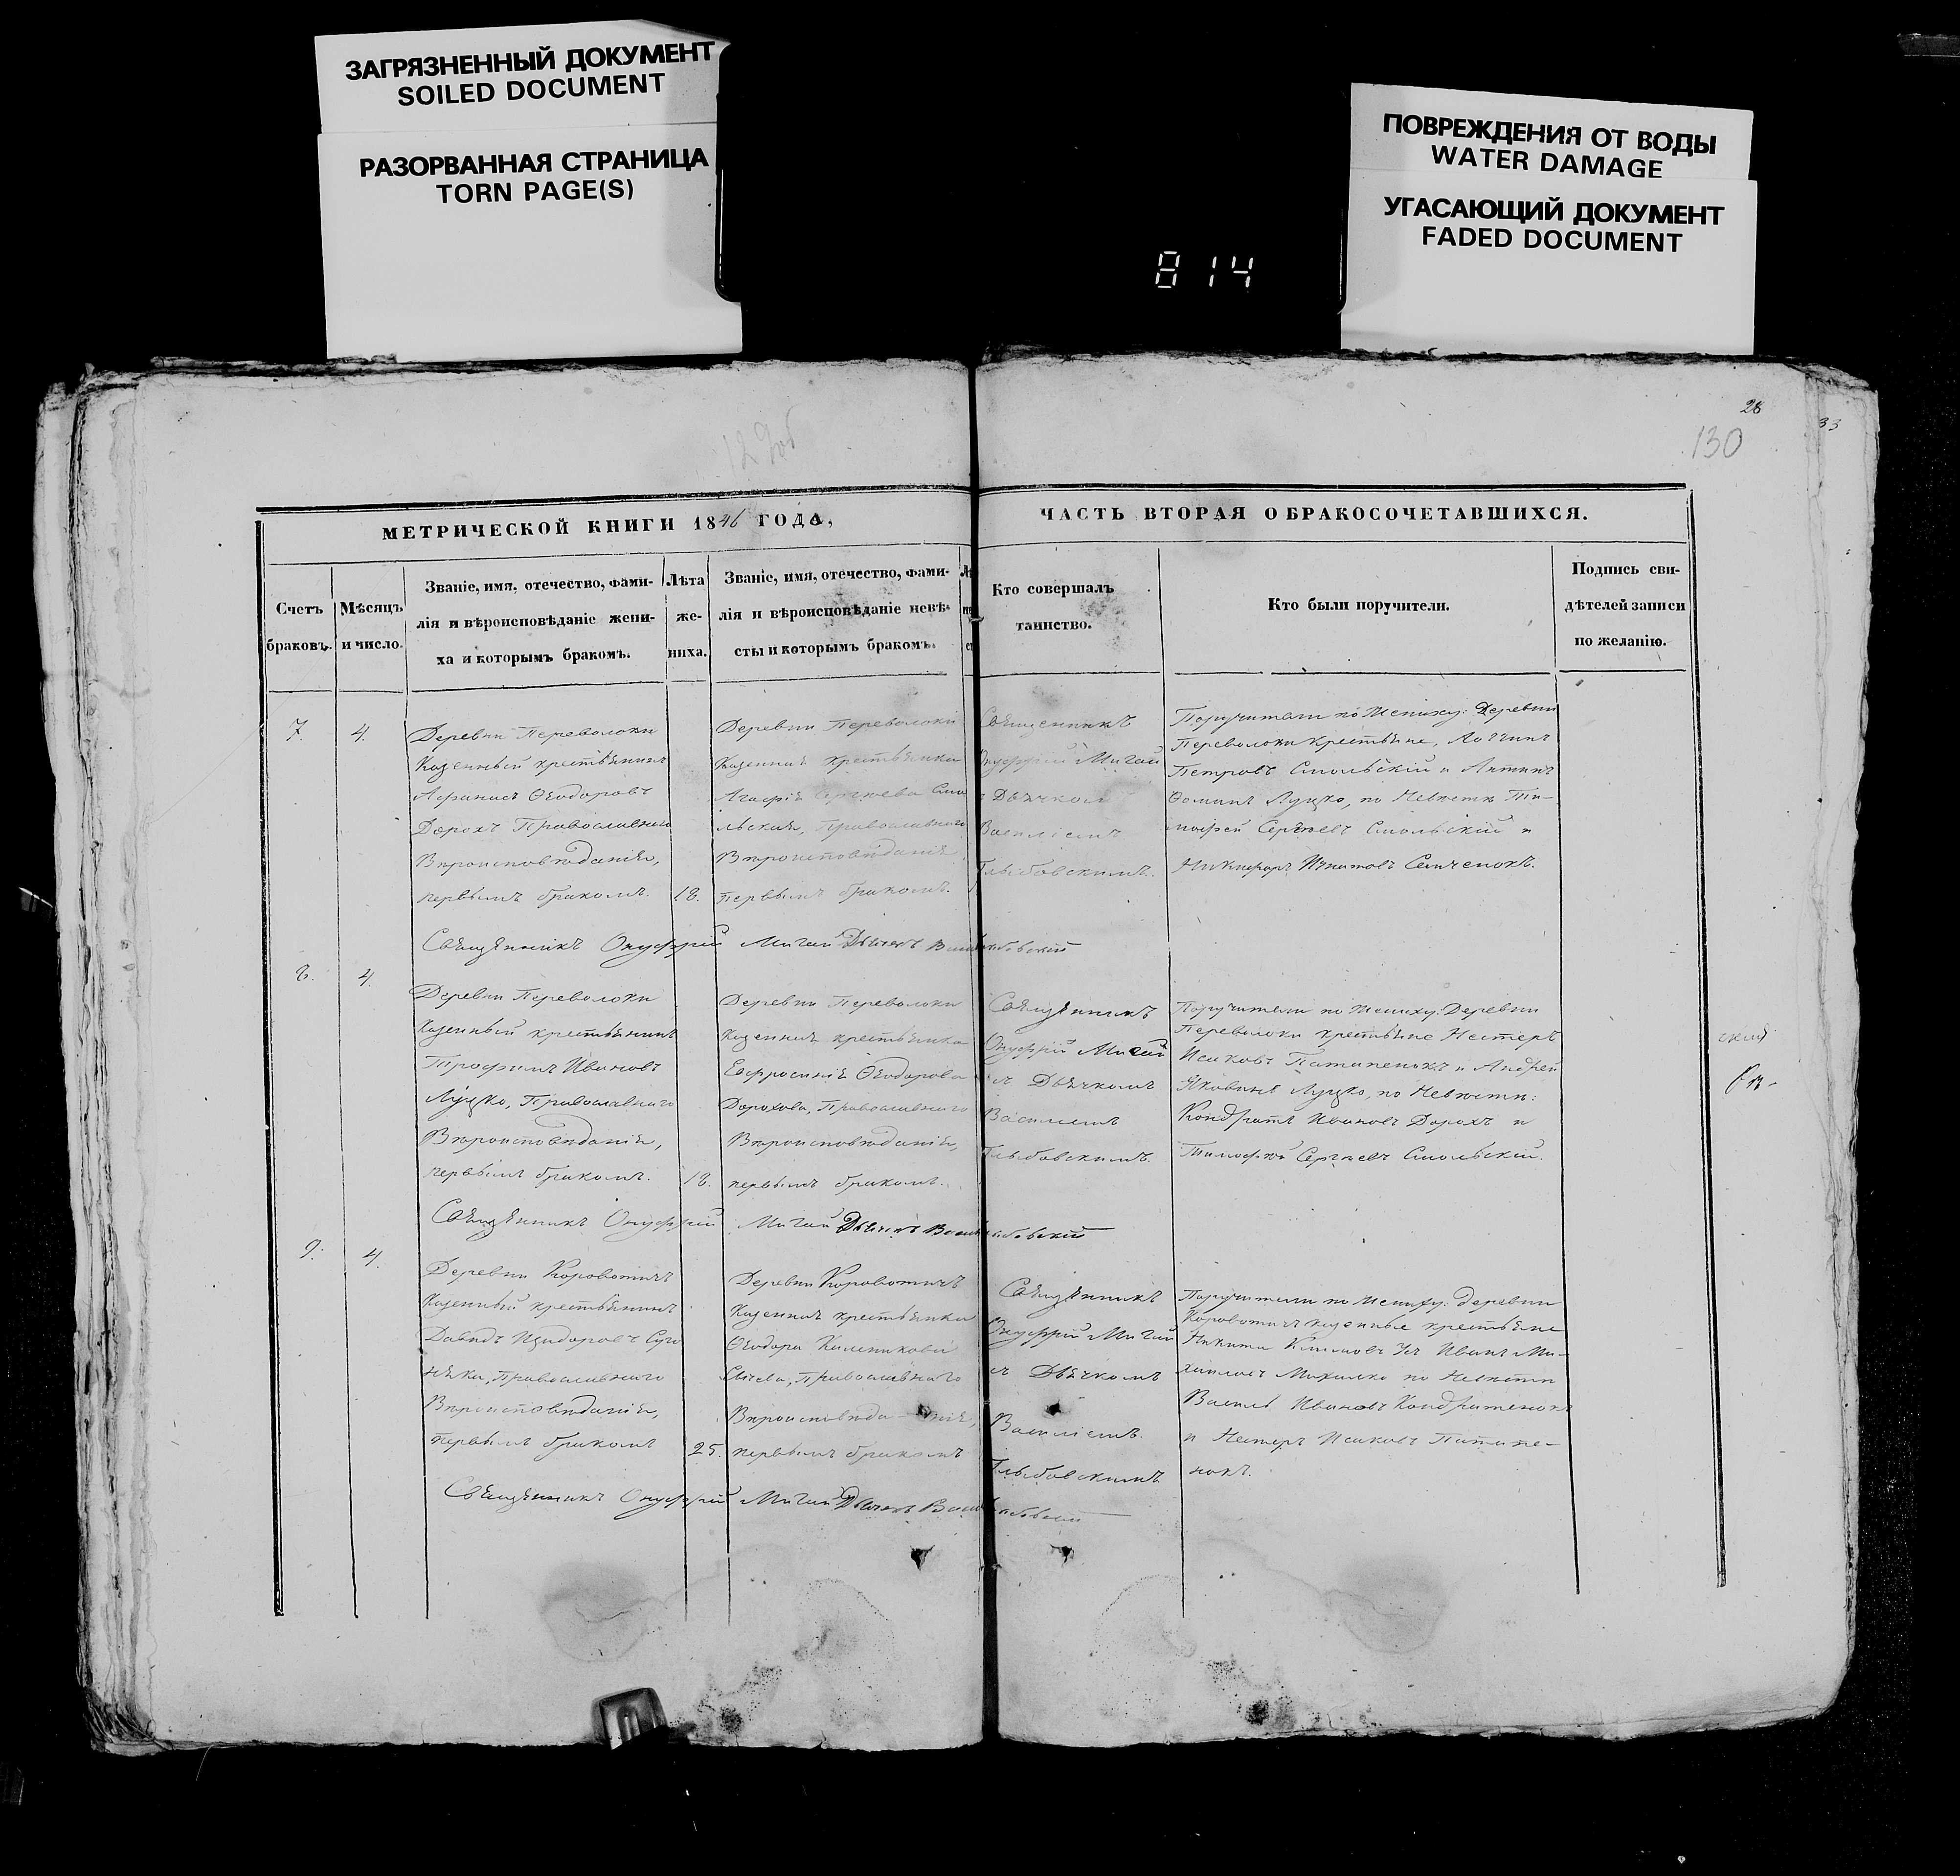 ЗАГРЯЗНЕННЫЙ ДОКУМЕНТ
SOILED DOCUMENT
РАЗОРВАННАЯ СТРАНИЦА
TORN PAGE(S)
ПОВРЕЖДЕНИЯ ОТ ВОДЫ
WATER DAMAGE
УГАСАЮЩИЙ ДОКУМЕНТ
FADED DOCUMENT
814
28
33
130
МЕТРИЧЕСКОЙ КНИГИ 1846 ГОДА,
ЧАСТЬ ВТОРАЯ О БРАКОСОЧЕТАВШИХСЯ.
Счетъ
браковъ.
Мѣсяцъ
и число.
Званіе, имя, отечество, фами-
лія и вѣроисповѣданіе жени-
ха и которымъ бракомъ.
Лѣта
же-
ниха.
Званіе, имя, отечество, фами-
лія и вѣроисповѣданіе невѣ-
сты и которымъ бракомъ.
Кто совершалъ
таинство.
Кто были поручители.
Подпись сви-
дѣтелей записи
по желанію.
7.
4.
Деревни Переволоки
Казенный крестьянинъ
Афанасъ Ѳеодоровъ
Дорохъ Православнаго
Вѣроисповѣданія,
первымъ бракомъ.
18.
Деревни Переволоки
Казенная крестьянка
Агафія Сергѣева Смо
льская, Православнаго
Вѣроисповѣданія
первымъ бракомъ.
Священникъ
Онуфрій Мигай
съ Дьячкомъ
Василіемъ
Глыбовскимъ.
Поручители по Жениху: Деревни
Переволоки крестьяне,
Петровъ Смольскій и Антинъ
Ѳоминъ Луцко, по Невѣстѣ Ти-
мофей Сергѣевъ Смольскій и
Никифоръ Игнатовъ
Священникъ Онуфрій Мигай Дьячекъ
8.
4.
Деревни Переволоки
Казенный крестьянинъ
Трофимъ Ивановъ
Луцко, Православнаго
Вѣроисповѣданія,
первымъ бракомъ.
18.
Деревни Переволоки
Казенная крестьянка
Евфросинія Ѳеодорова
Дорохова, Православнаго
Вѣроисповѣданія,
первымъ бракомъ.
Священникъ
Онуфрій Мигай
съ Дьячкомъ
Василіемъ
Глыбовскимъ.
Поручители по Жениху: Деревни
Переволоки крестьяне Нестеръ
Исаковъ Патапенокъ и Андрей
Яковинъ Луцко, по Невѣстѣ:
Кондратъ Ивановъ Дорохъ и
Тимофей Сергѣевъ Смольскій.
Священникъ Онуфрій Мигай Дьячекъ
9.
4.
Деревни Короватичъ
Казенный крестьянинъ
Давидъ Исидоровъ
Православнаго
Вѣроисповѣданія,
первымъ бракомъ
25.
Деревни Короватичъ
Казенная крестьянка
Ѳеодора Каленикова
Православнаго
Вѣроисповѣданія,
первымъ бракомъ
Священникъ
Онуфрій Мигай
съ Дьячкомъ
Василіемъ
Глыбовскимъ
Поручители по Жениху: деревни
Короватичъ казенные крестьяне
Никита Иванъ Ми-
хайловъ по Невѣстѣ
Василь Ивановъ Кондратенокъ
и Нестеръ Исаковъ Патапе-
нокъ.
Священникъ Онуфрій Мигай Дьячекъ